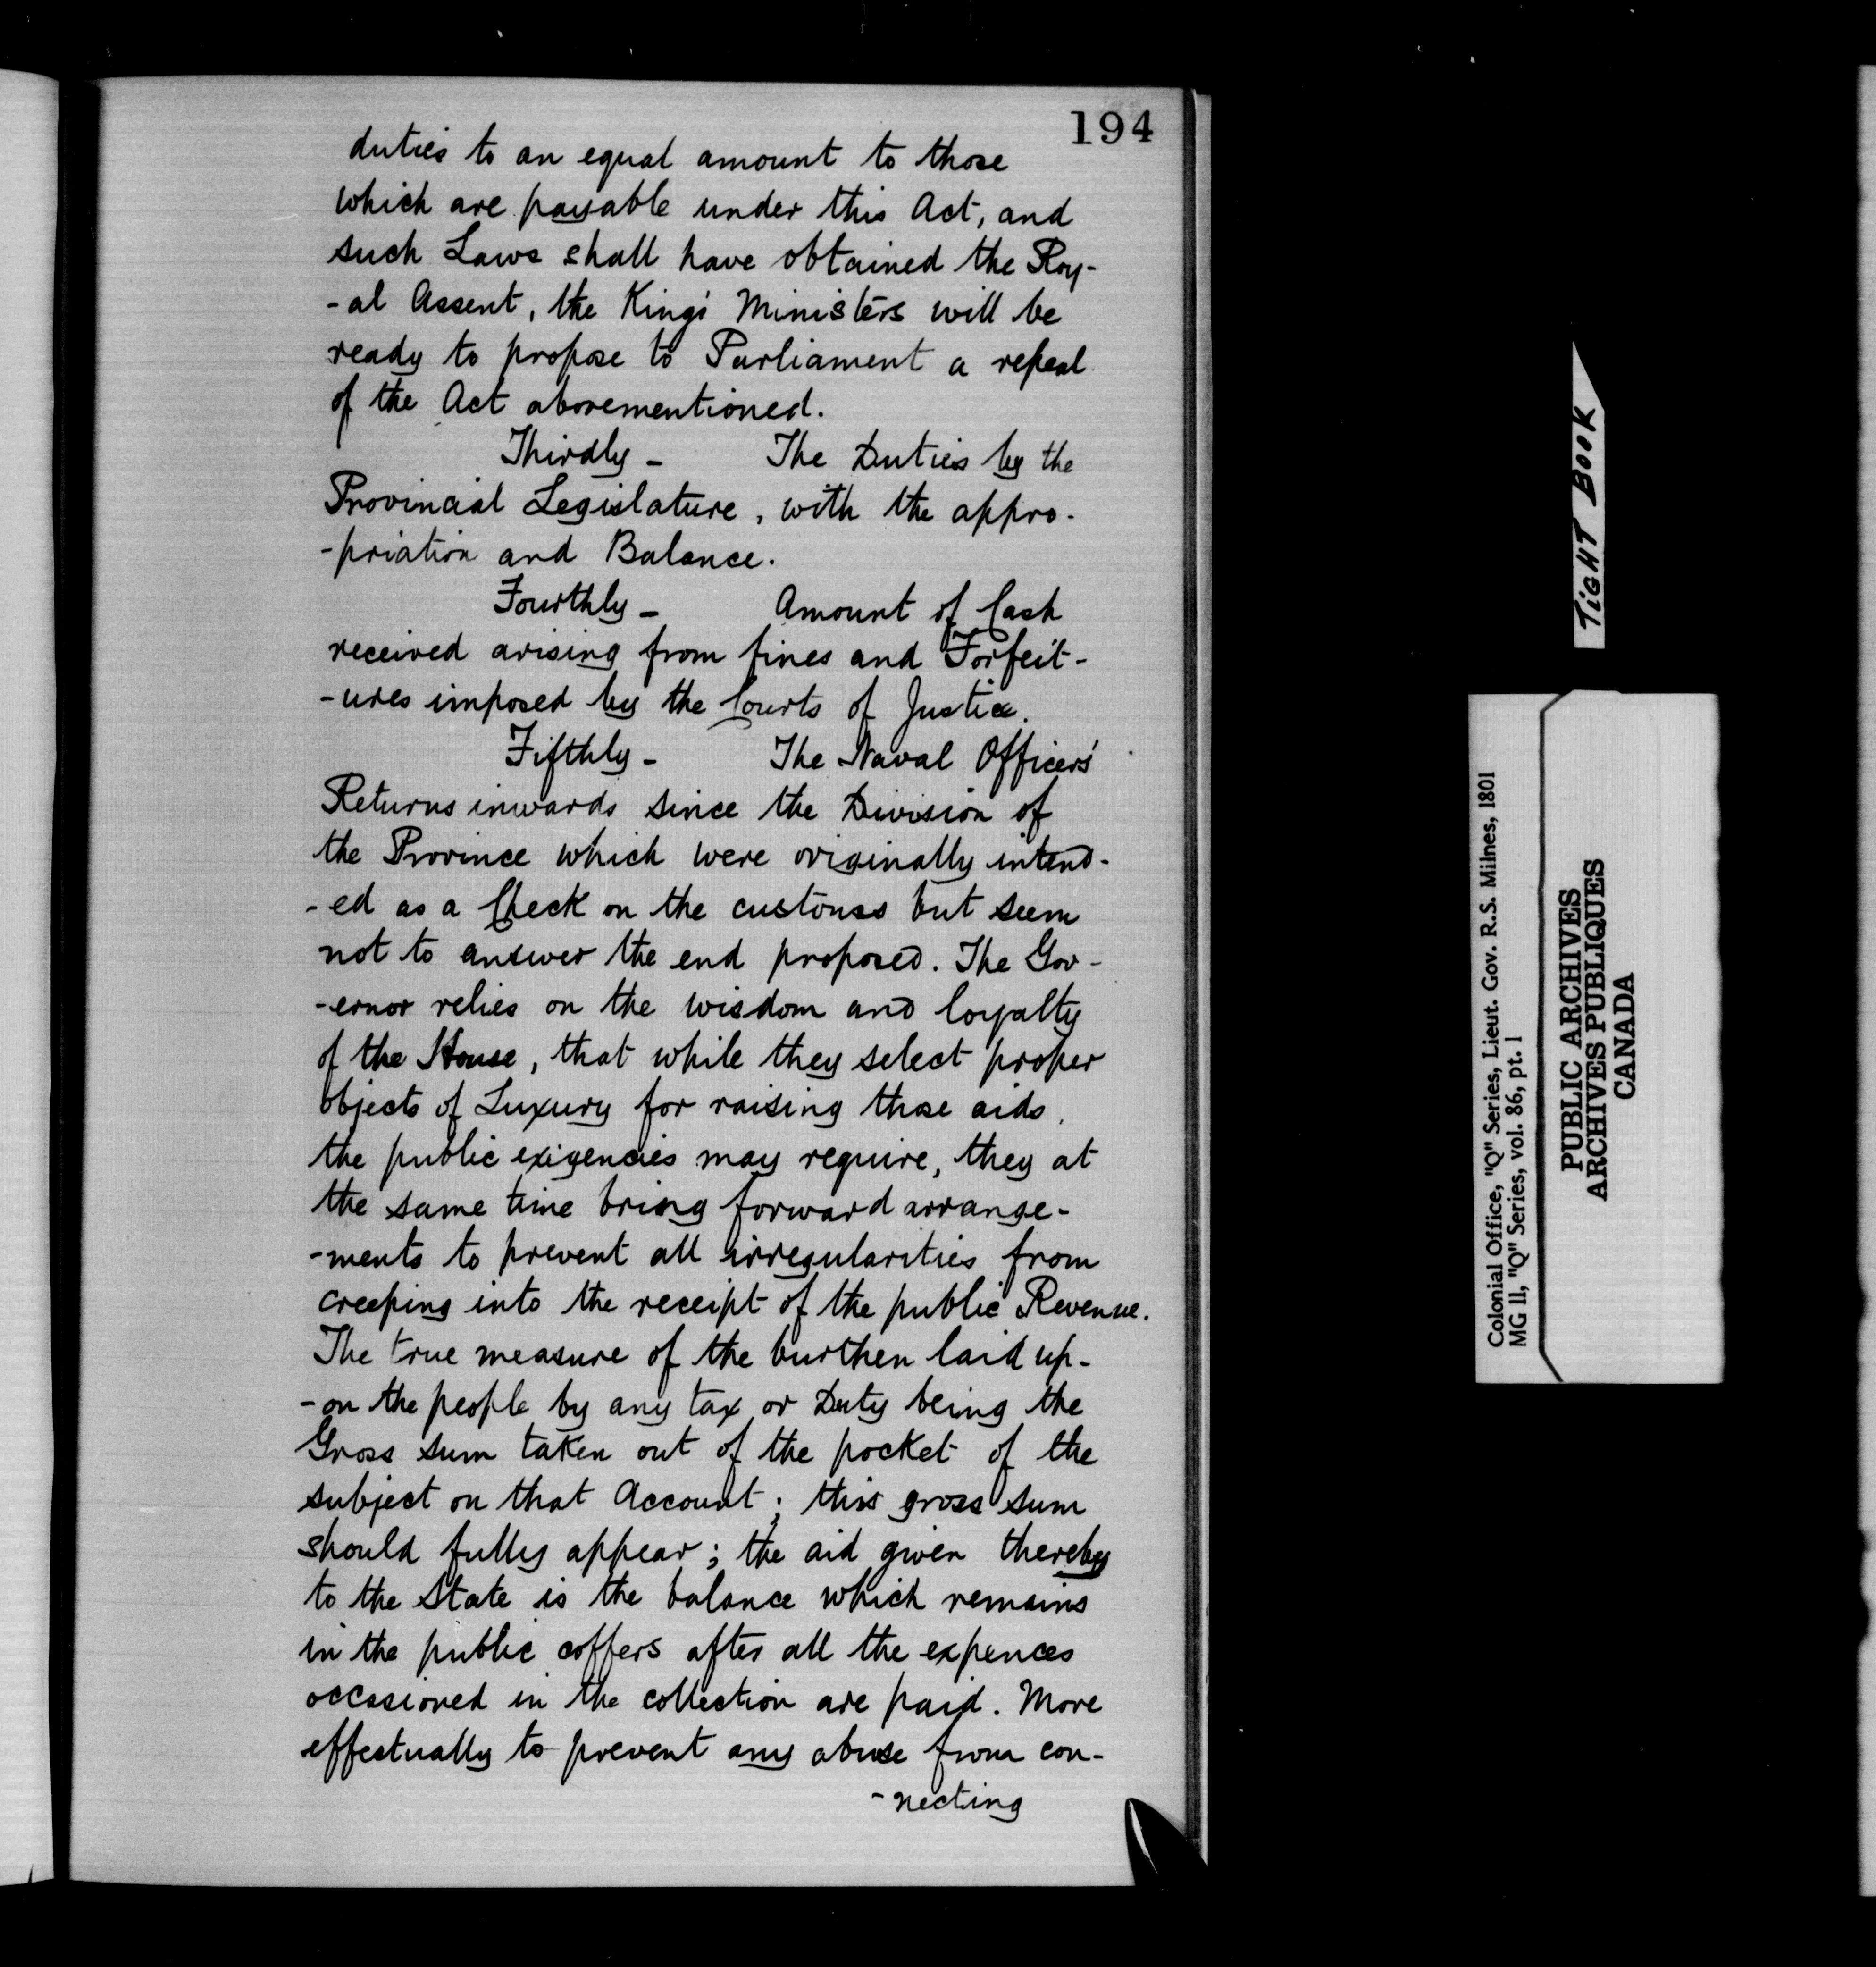 194
duties to an equal amount to those
which are payable under this Act, and
such Laws shall have obtained the Roy-
-al Assent, the King's Ministers will be
ready to propose to Parliament a repeal
of the Act abovementioned.
Thirdly - The Duties by the
Provincial Legislature, with the appro-
-priation and Balance.
Fourthly - Amount of Cash
received arising from fines and Forfeit-
-ures imposed by the Courts of Justice.
Fifthly - The Naval Officers'
Returns inwards since the Division of
the Province which were originally intend-
-ed as a Check on the customs but seem
not to answer the end proposed. The Gov-
-ernor relies on the wisdom and loyalty
of the House, that while they select proper
objects of Luxury for raising those aids,
the public exigencies may require, they at
the same time bring forward arrange-
-ments to prevent all irregularities from
creeping into the receipt of the public Revenue.
The true measure of the burthen laid up-
-on the people by any tax or Duty being the
Gross sum taken out of the pocket of the
subject on that Account; this gross sum
should fully appear; the aid given thereby
to the State is the balance which remains
in the public coffers after all the expences
occasioned in the collection are paid. More
effectually to prevent any abuse from con-
-necting
TIGHT BOOK
Colonial Office, "Q" Series, Lieut. Gov. R.S. Milnes, 1801
MG 11, "Q" Series, vol. 86, pt. 1
PUBLIC ARCHIVES
ARCHIVES PUBLIQUES
CANADA